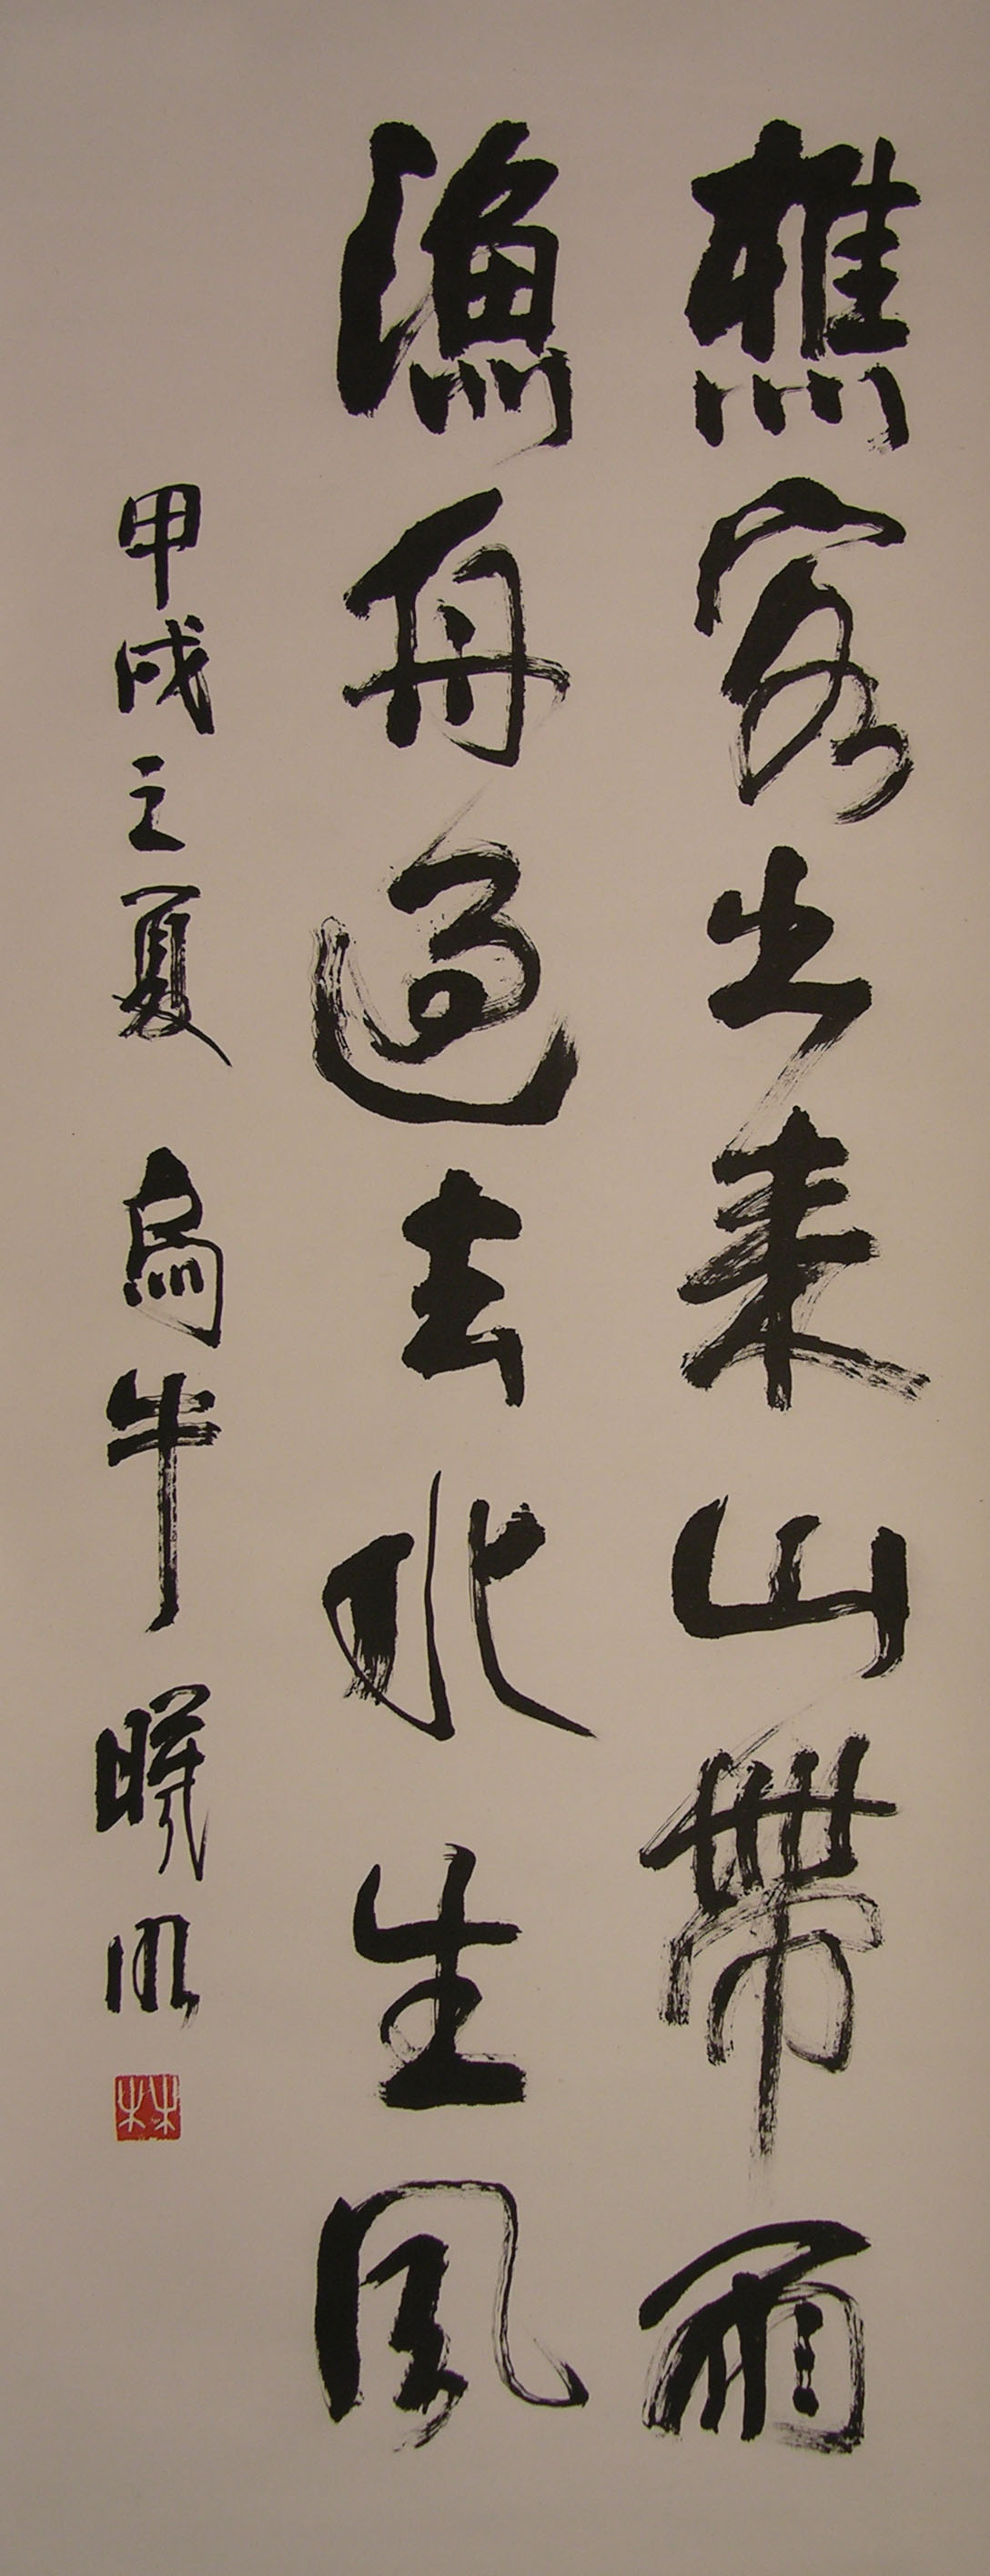 樵客出来山帶雨
漁舟過去水生風
甲戌之夏 烏牛 曉明
林